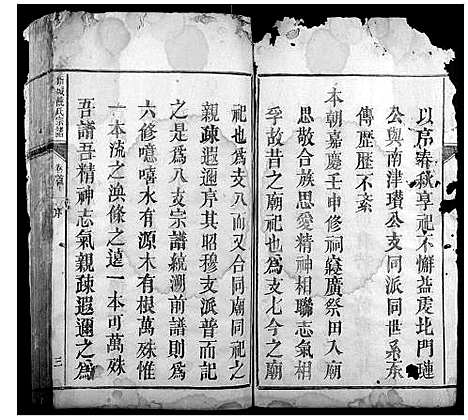 以序春秋享祀不懈益虔北門璉
公與南津瓚公支同派同世系亦
傳歷歷不紊
本朝嘉慶壬申修祠寢廣祭田入廟
思敬合族思愛精神相聯志氣相
孚故昔之廟祀也為支七今之廟
祀也為支八而又合同廟同祀之
親疎遐邇序其昭穆支派普而記
之是為八支宗譜統溯前譜則為
六修噫嘻水有源木有根萬殊惟
一本流之渙條之遠一本可萬殊
吾譜吾精神志氣親疎遐邇之為
氏宗譜
序
三